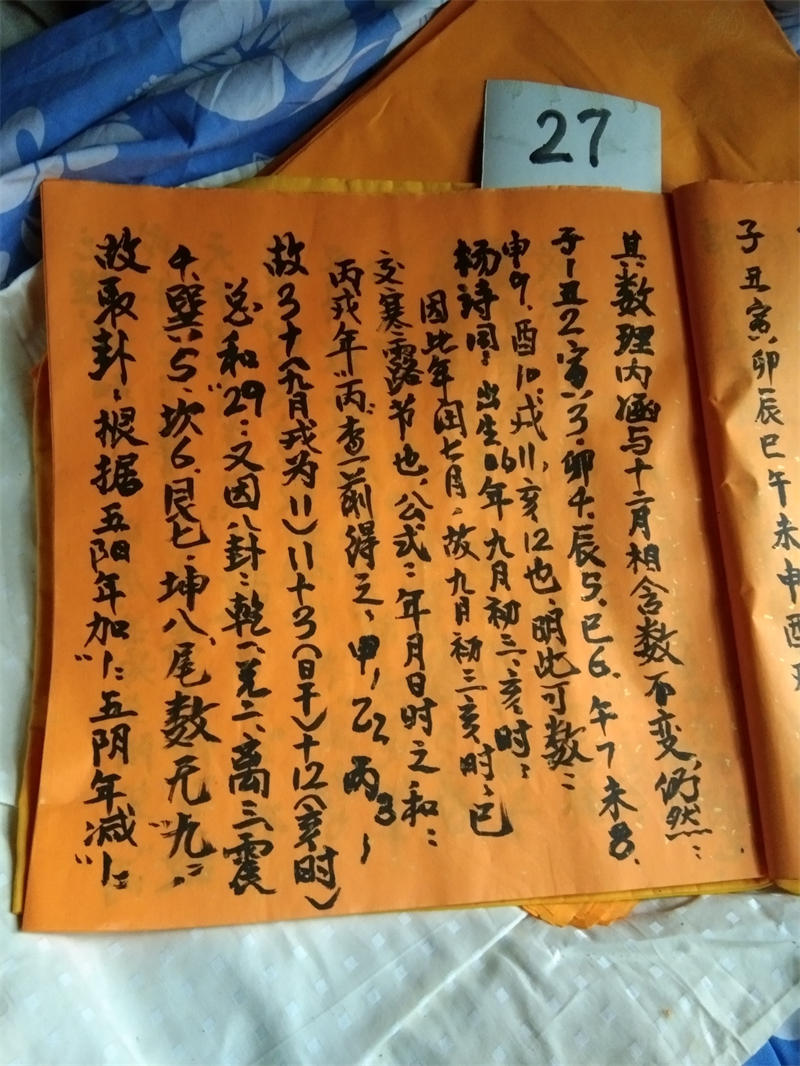 27
子丑寅卯辰巳午未申酉
其数理内涵与十二月相含数不变,仍然:
子1丑2、寅3、卯4、辰5、巳6、午7未8、
申9、酉10、戌11、亥12也、明此可数:
杨诗闰:出生06年九月初三、亥时:
因此年闰七月、故九月初三亥时、已
交寒露节也、公式:年月日时之和:
丙戌年"丙"查前得之、甲1乙2丙3
故3十(九月戌为11)11十3(日干)十12(亥时)
总和"29":又因八卦:乾一、兑二、离三、震
4、巽5、坎6、艮七、坤八、尾数无"九":
故取卦:根据五阳年加"1":五阴年减"1":